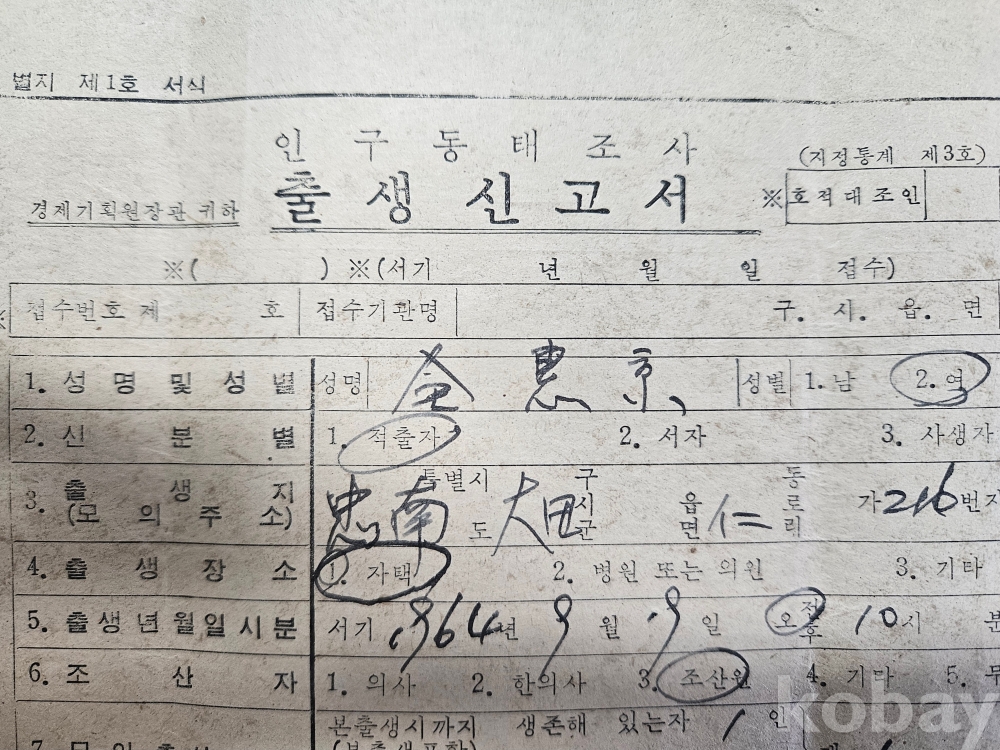 별지 제1호 서식
인구동태조사
(지정통계 제3호)
출생신고서
※호적대조인
경제기획원장관 귀하
※( ) ※(서기 년 월 일 접수)
접수번호 제 호 접수기관명 구. 시. 읍. 면
1. 성명 및 성별 성명 全惠京 성별 1. 남 2. 여
2. 신분별 1. 적출자 2. 서자 3. 사생자
3. 출생지 (모의주소) 忠南 특별시 도 大田 구 시 군 읍 면 仁二 동 로 리 가 216 번지
4. 출생장소 1. 자택 2. 병원 또는 의원 3. 기타
5. 출생년월일시분 서기 1964년 9월 9일 오 전 후 10시 분
6. 조산자 1. 의사 2. 한의사 3. 조산원 4. 기타 5. 무
본출생시까지 생존해 있는자 1 인
7.
kobay